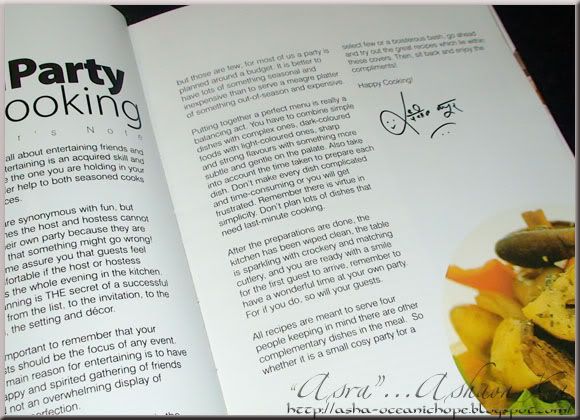 Party
ooking
r's Note
all about entertaining friends and
tertaining is an acquired skill and
e the one you are holding in your
er help to both seasoned cooks
ces.
re synonymous with fun, but
es the host and hostess cannot
heir own party because they are
that something might go wrong!
me assure you that guests feel
mfortable if the host or hostess
s the whole evening in the kitchen.
nning is THE secret of a successful
from the list, to the invitation, to the
, the setting and décor.
mportant to remember that your
sts should be the focus of any event.
main reason for entertaining is to have
appy and spirited gathering of friends
not an overwhelming display of
perfection.
but those are few; for most of us a party is
planned around a budget. It is better to
have lots of something seasonal and
inexpensive than to serve a meagre platter
of something out-of-season and expensive.
Putting together a perfect menu is really a
balancing act. You have to combine simple
dishes with complex ones, dark-coloured
foods with light-coloured ones, sharp
and strong flavours with something more
subtle and gentle on the palate. Also take
into account the time taken to prepare each
dish. Don't make every dish complicated
and time-consuming or you will get
frustrated. Remember there is virtue in
simplicity. Don't plan lots of dishes that
need last-minute cooking.
After the preparations are done, the
kitchen has been wiped clean, the table
is sparkling with crockery and matching
cutlery, and you are ready with a smile
for the first guest to arrive, remember to
have a wonderful time at your own party.
For if you do, so will your guests.
All recipes are meant to serve four
people keeping in mind there are other
complementary dishes in the meal. So
whether it is a small cosy party for a
select few or a boisterous bash, go ahead
and try out the great recipes which lie within
these covers. Then, sit back and enjoy the
compliments!
Happy Cooking!
"Asra"...
http://asha-oceanichope.blogspot.com